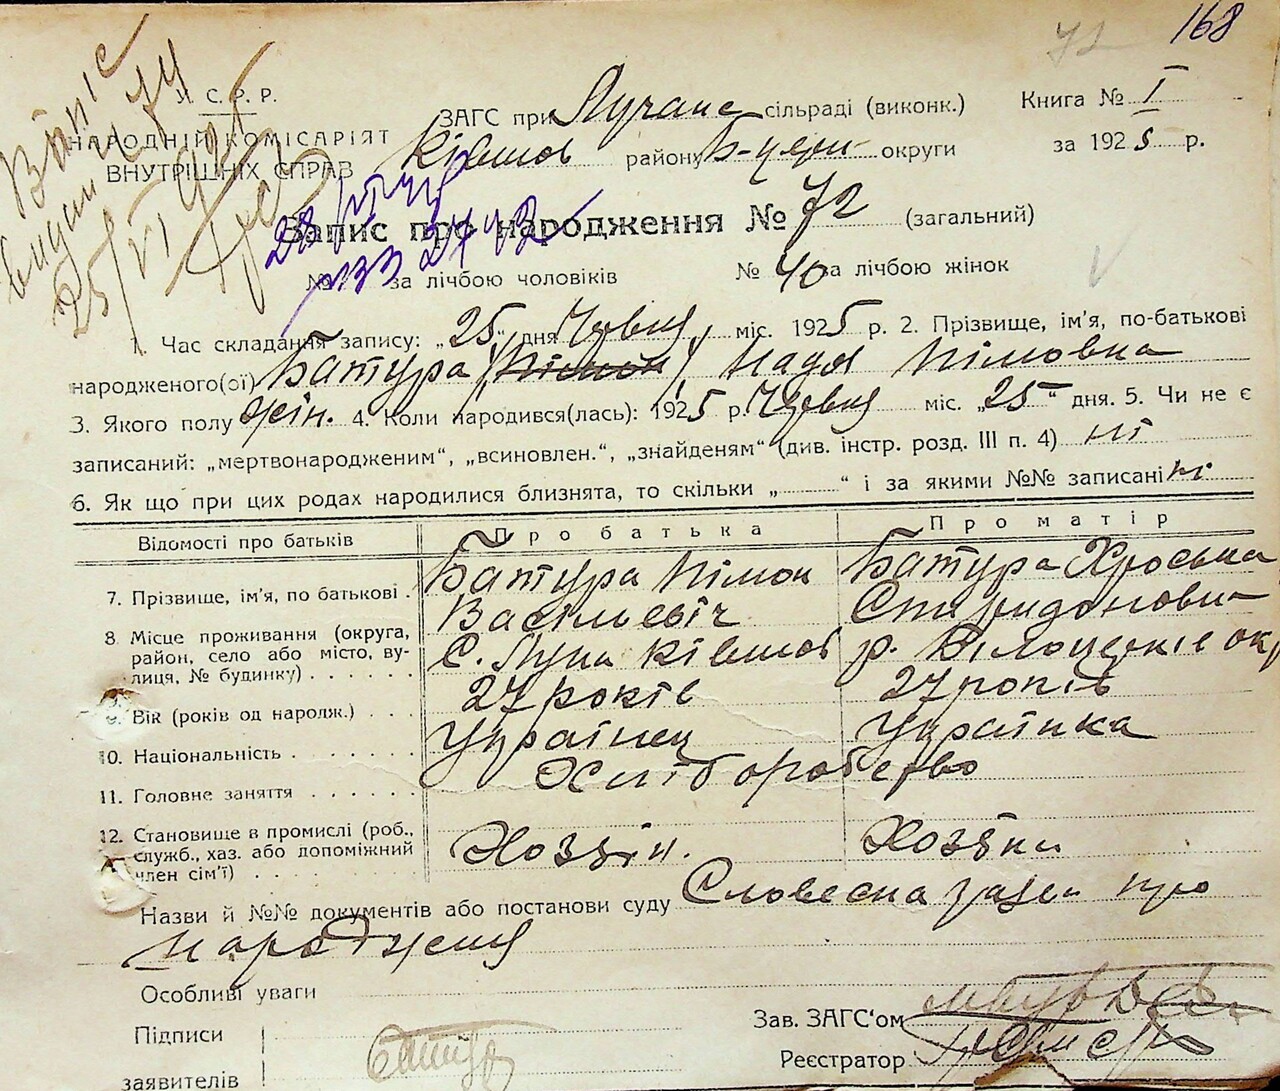 72 168
Віпис
видан
25/VI
У. С. Р. Р.
НАРОДНІЙ КОМІСАРІЯТ
ВНУТРІШНІХ СПРАВ
ЗАГС при Лучанс сільраді (виконк.)
Ківшов району Б-церк- округи
Книга № I
за 1925 р.
Запис про народження № 72 (загальний)
№ за лічбою чоловіків № 40 за лічбою жінок
1. Час складання запису: „25" дня Червня міс. 1925 р. 2. Прізвище, ім'я, по-батькові
народженого(ої) Батура (Пімон) Надя Пімовна
3. Якого полу жін. 4. Коли народився(лась): 1925 р. Червня міс. „25" дня. 5. Чи не є
записаний: „мертвонародженим", „всиновлен.", „знайденям" (див. інстр. розд. III п. 4) ні
6. Як що при цих родах народилися близнята, то скільки „ " і за якими №№ записані ні
Відомості про батьків Про батька Про матір
7. Прізвище, ім'я, по батькові . Батура Пімон Васільевіч Батура Хроська Спиридонови-
8 Місце проживання (округа,
район, село або місто, ву-
лиця, № будинку) . . . . . . С. Лука Ківшов р. Білоцеркіє окр
9. Вік (років од народж.) . . . 27 років 27 років
10. Національність . . . . . . . Українец Українка
11. Головне заняття . . . . . . Хліборобство
12. Становище в промислі (роб.,
служб., хаз. або допоміжний
член сім'ї) . . . . . . . . . Хоззін. Хоззйка
Назви й №№ документів або постанови суду Словесна заяв про
народженя
Особливі уваги
Підписи
заявителів Батура
Зав. ЗАГС'ом
Реєстратор